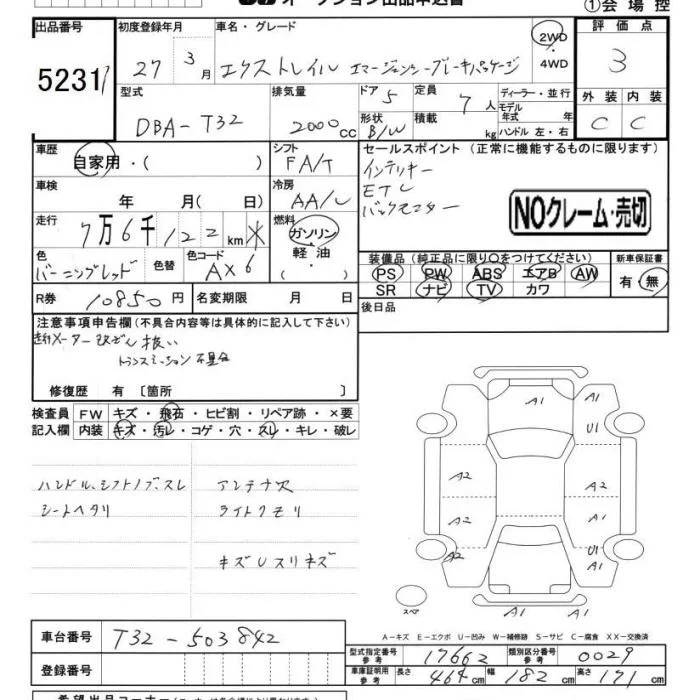 オークション出品申込書 ①会場控
出品番号 初度登録年月 車名・グレード 評価点
52317 27年 3月 エクストレイル エマージェンシーブレーキパッケージ 2WD・4WD 3
型式 排気量 ドア 5 定員 7人 ディーラー・並行 外装 内装
DBA-T32 2000cc 形状 B/W 積載 kg モデル年式 年 ハンドル 左・右 C C
車歴 自家用・( ) シフト FA/T セールスポイント(正常に機能するものに限ります)
車検 年 月( 日) 冷房 AA/C インテリキー
ETC
バックモニター
NOクレーム・売切
走行 7万6千122km 燃料 ガソリン・軽油・
色 バーニングレッド 色替 色コード AX6
装備品(純正品に限り○をつけてください) 新車保証書
PS PW ABS エアB AW 有・無
SR ナビ TV カワ
R券 10850円 名変期限 月 日 後日品
注意事項申告欄(不具合内容等は具体的に記入して下さい)
走行メーター改ざん扱い
トランスミッション不具合
修復歴 有 〔箇所 〕
検査員 FW キズ・飛石・ヒビ割・リペア跡・×要
記入欄 内装 キズ・汚レ・コゲ・穴・スレ・キレ・破レ
ハンドル、シフトノブスレ アンテナ欠
シートヘタリ ライトクモリ
キズUスリキズ
A1 A1
U1
A2 A2
A2 A2
A2 U1 A1
A1
スペア
A－キズ E－エクボ U－凹み W－補修跡 S－サビ C－腐食 XX－交換済
車台番号 T32-503842
型式指定番号 参考 17662 類別区分番号 参考 0029
登録番号 車庫証明用 参考 長さ 464cm 幅 182cm 高さ 171cm
希望出品コーナー